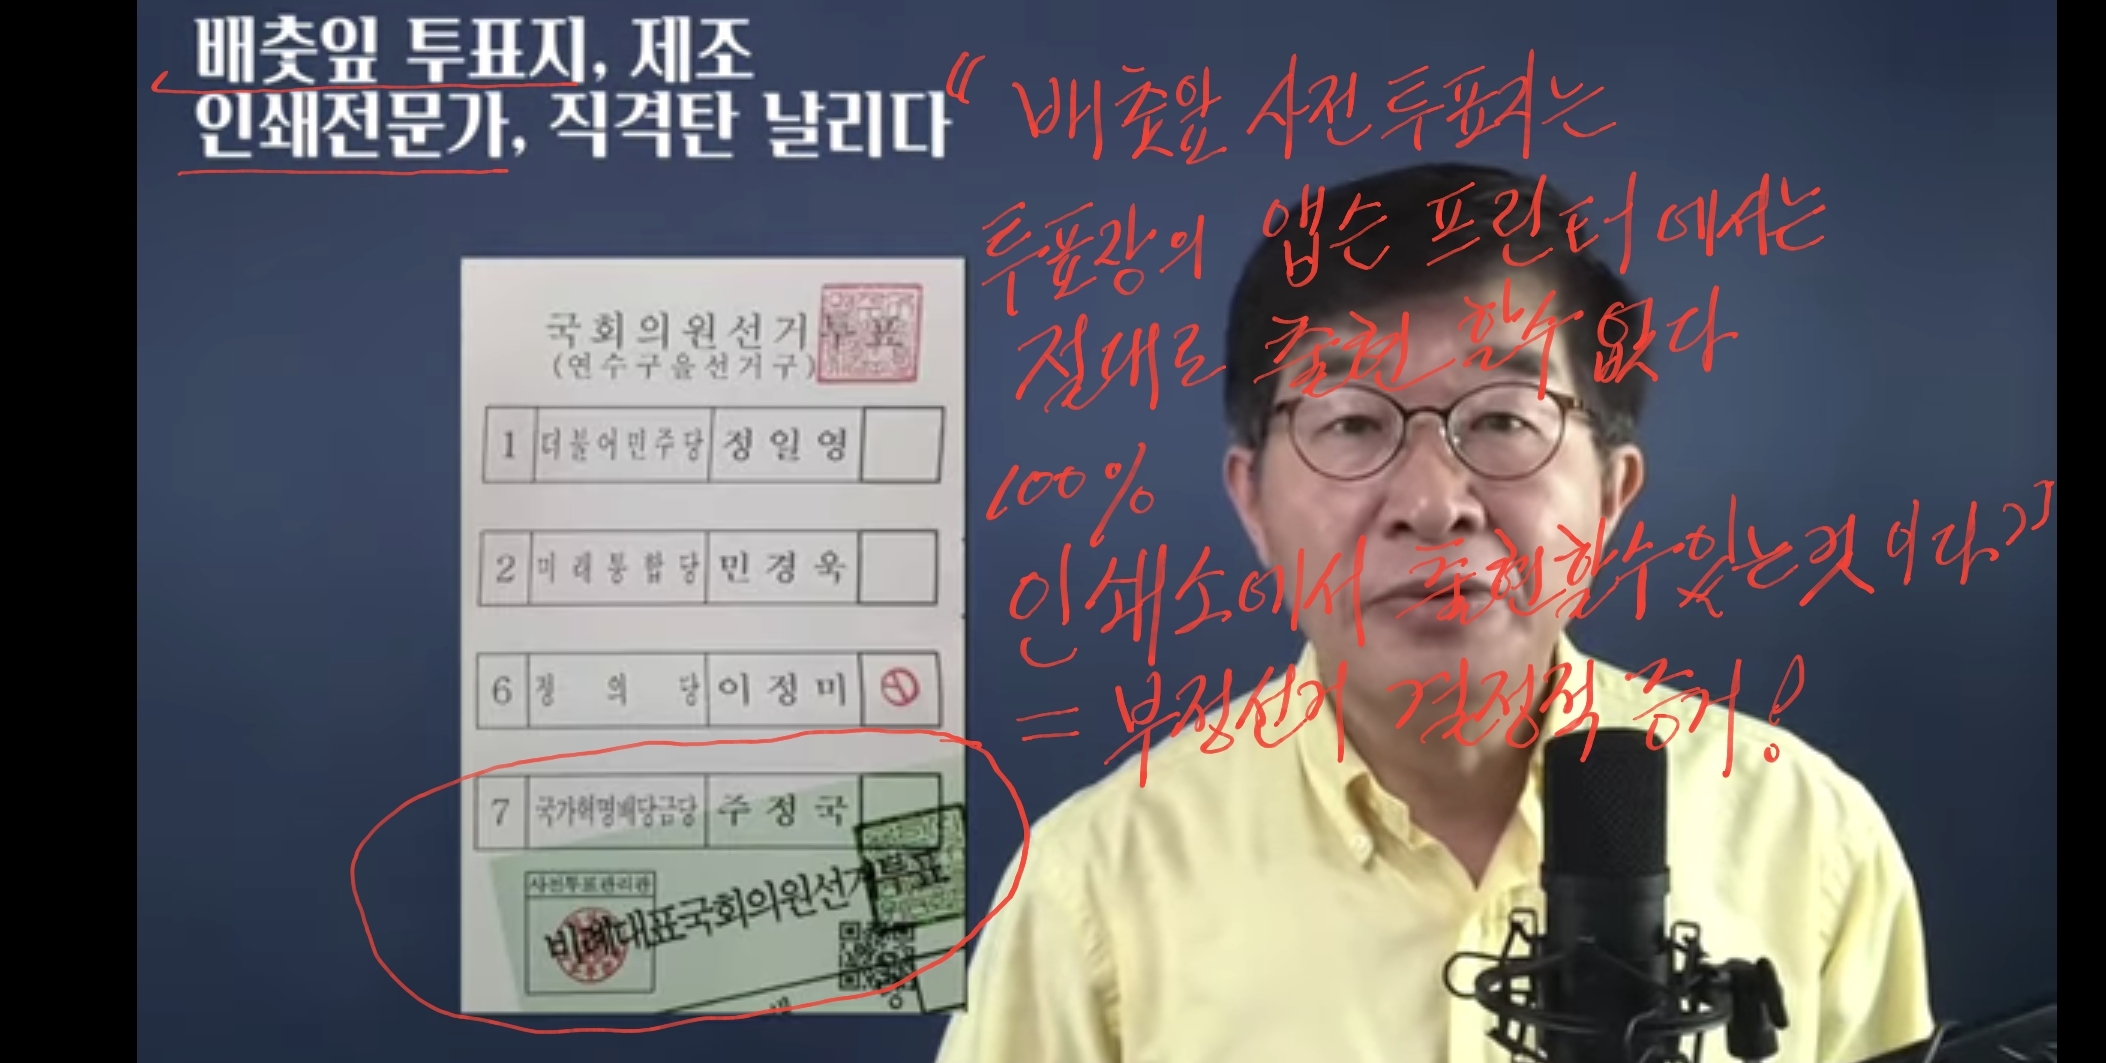 배춧잎 투표지, 제조
인쇄전문가, 직격탄 날리다
"배춧잎 사전투표지는
투표장의 앱슨 프린터에서는
절대로 출현 할수 없다
100%
인쇄소에서 출현할수있는것이다."
= 부정선거 결정적 증거!
국회의원선거투표
(연수구을선거구)
1 더불어민주당 정일영
2 미래통합당 민경욱
6 정의당 이정미
7 국가혁명배당금당 주정국
사전투표관리관
비례대표국회의원선거투표